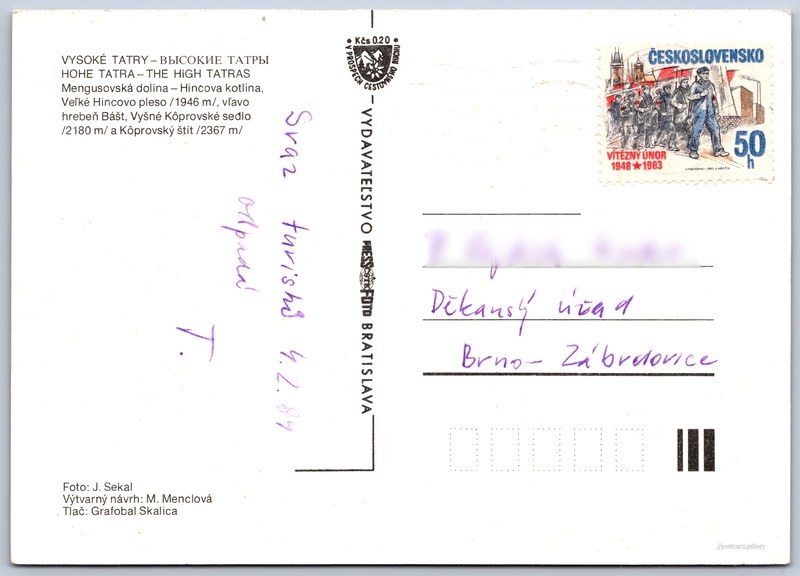 VYSOKÉ TATRY – ВЫСОКИЕ ТАТРЫ
HOHE TATRA – THE HIGH TATRAS
Mengusovská dolina – Hincova kotlina,
Veľké Hincovo pleso /1946 m/, vľavo
hrebeň Bášt, Vyšné Kôprovské sedlo
/2180 m/ a Kôprovský štít /2367 m/
Kčs 0.20
V PROSPECH CESTOVNÉHO RUCHU
VYDAVATEĽSTVO PRESSFOTO BRATISLAVA
ČESKOSLOVENSKO
VÍTĚZNÝ ÚNOR
1948 ★ 1983
50 h
Svaz turistů 4.2.84
odpadá
T.
Děkanský úřad
Brno – Zábrdovice
Foto: J. Sekal
Výtvarný návrh: M. Menclová
Tlač: Grafobal Skalica
//postcard.gallery